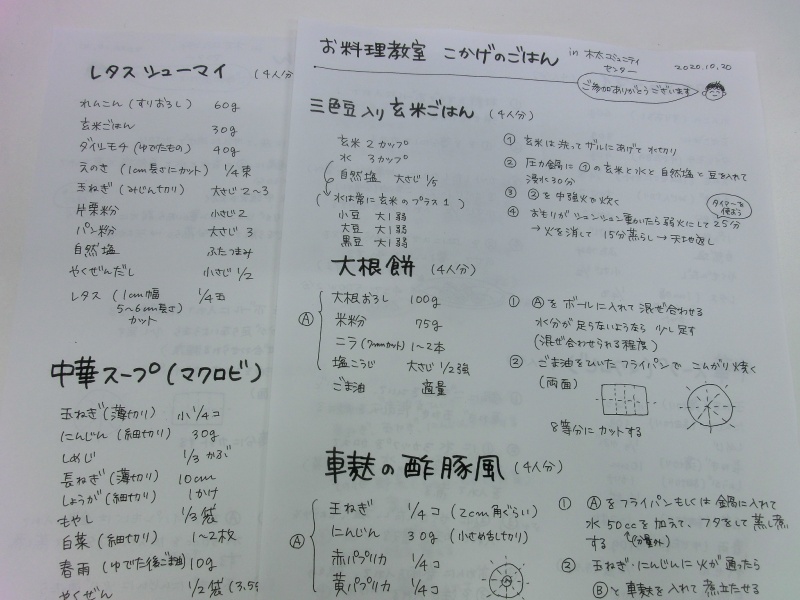 レタスシューマイ (4人分
れんこん(すりおろし) 60g
玄米ごはん 30g
ダイリモチ(ゆでたもの) 40g
えのき(1cm長さにカット) 1/4束
玉ねぎ(みじん切り) 大さじ2〜3
片栗粉 小さじ2
パン粉 大さじ3
自然塩 ふたつまみ
やくぜんだし 小さじ1/2
レタス(1cm幅 1/4玉
5〜6cm長さ)
カット
中華スープ(マクロビ)
玉ねぎ(薄切り) 小1/4コ
にんじん(細切り) 30g
しめじ 1/3かぶ
長ねぎ(薄切り) 10cm
しょうが(細切り) 1かけ
もやし 1/3袋
白菜(細切り) 1〜2枚
春雨(ゆでた後ごま油) 10g
やくぜん 1/2袋(3.5g
お料理教室 こかげのごはん in 木太コミュニティ
センター
2020.10.20
ご参加ありがとうございます
三色豆入り玄米ごはん (4人分)
玄米 2カップ
水 3カップ
自然塩 大さじ1/5
(水は常に玄米のプラス1)
小豆 大1弱
大豆 大1弱
黒豆 大1弱
① 玄米は洗ってザルにあげて水切り
② 圧力鍋に①の玄米と水と自然塩と豆を入れて
浸水30分
③ ②を中強火で炊く
タイマーを
使おう
④ おもりがシュンシュン動いたら弱火にして25分
→火を消して 15分蒸らし→天地返し
大根餅 (4人分)
Ⓐ
大根おろし 100g
米粉 75g
ニラ(7mmカット) 1〜2本
塩こうじ 大さじ1/2強
ごま油 適量
① Ⓐをボールに入れて混ぜ合わせる
水分が足らないようなら少し足す
(混ぜ合わせられる程度)
② ごま油をひいたフライパンで こんがり焼く
(両面)
8等分にカットする
車麩の酢豚風 (4人分)
Ⓐ
玉ねぎ 1/4コ (2cm角ぐらい)
にんじん 30g (小さめ乱切り)
赤パプリカ 1/4コ
黄パプリカ 1/4コ
① Ⓐをフライパンもしくは鍋に入れて
水50ccを加えて、フタをして蒸し煮
する (分量外)
② 玉ねぎ・にんじんに火が通ったら
Ⓑと車麩を入れて煮立たせる